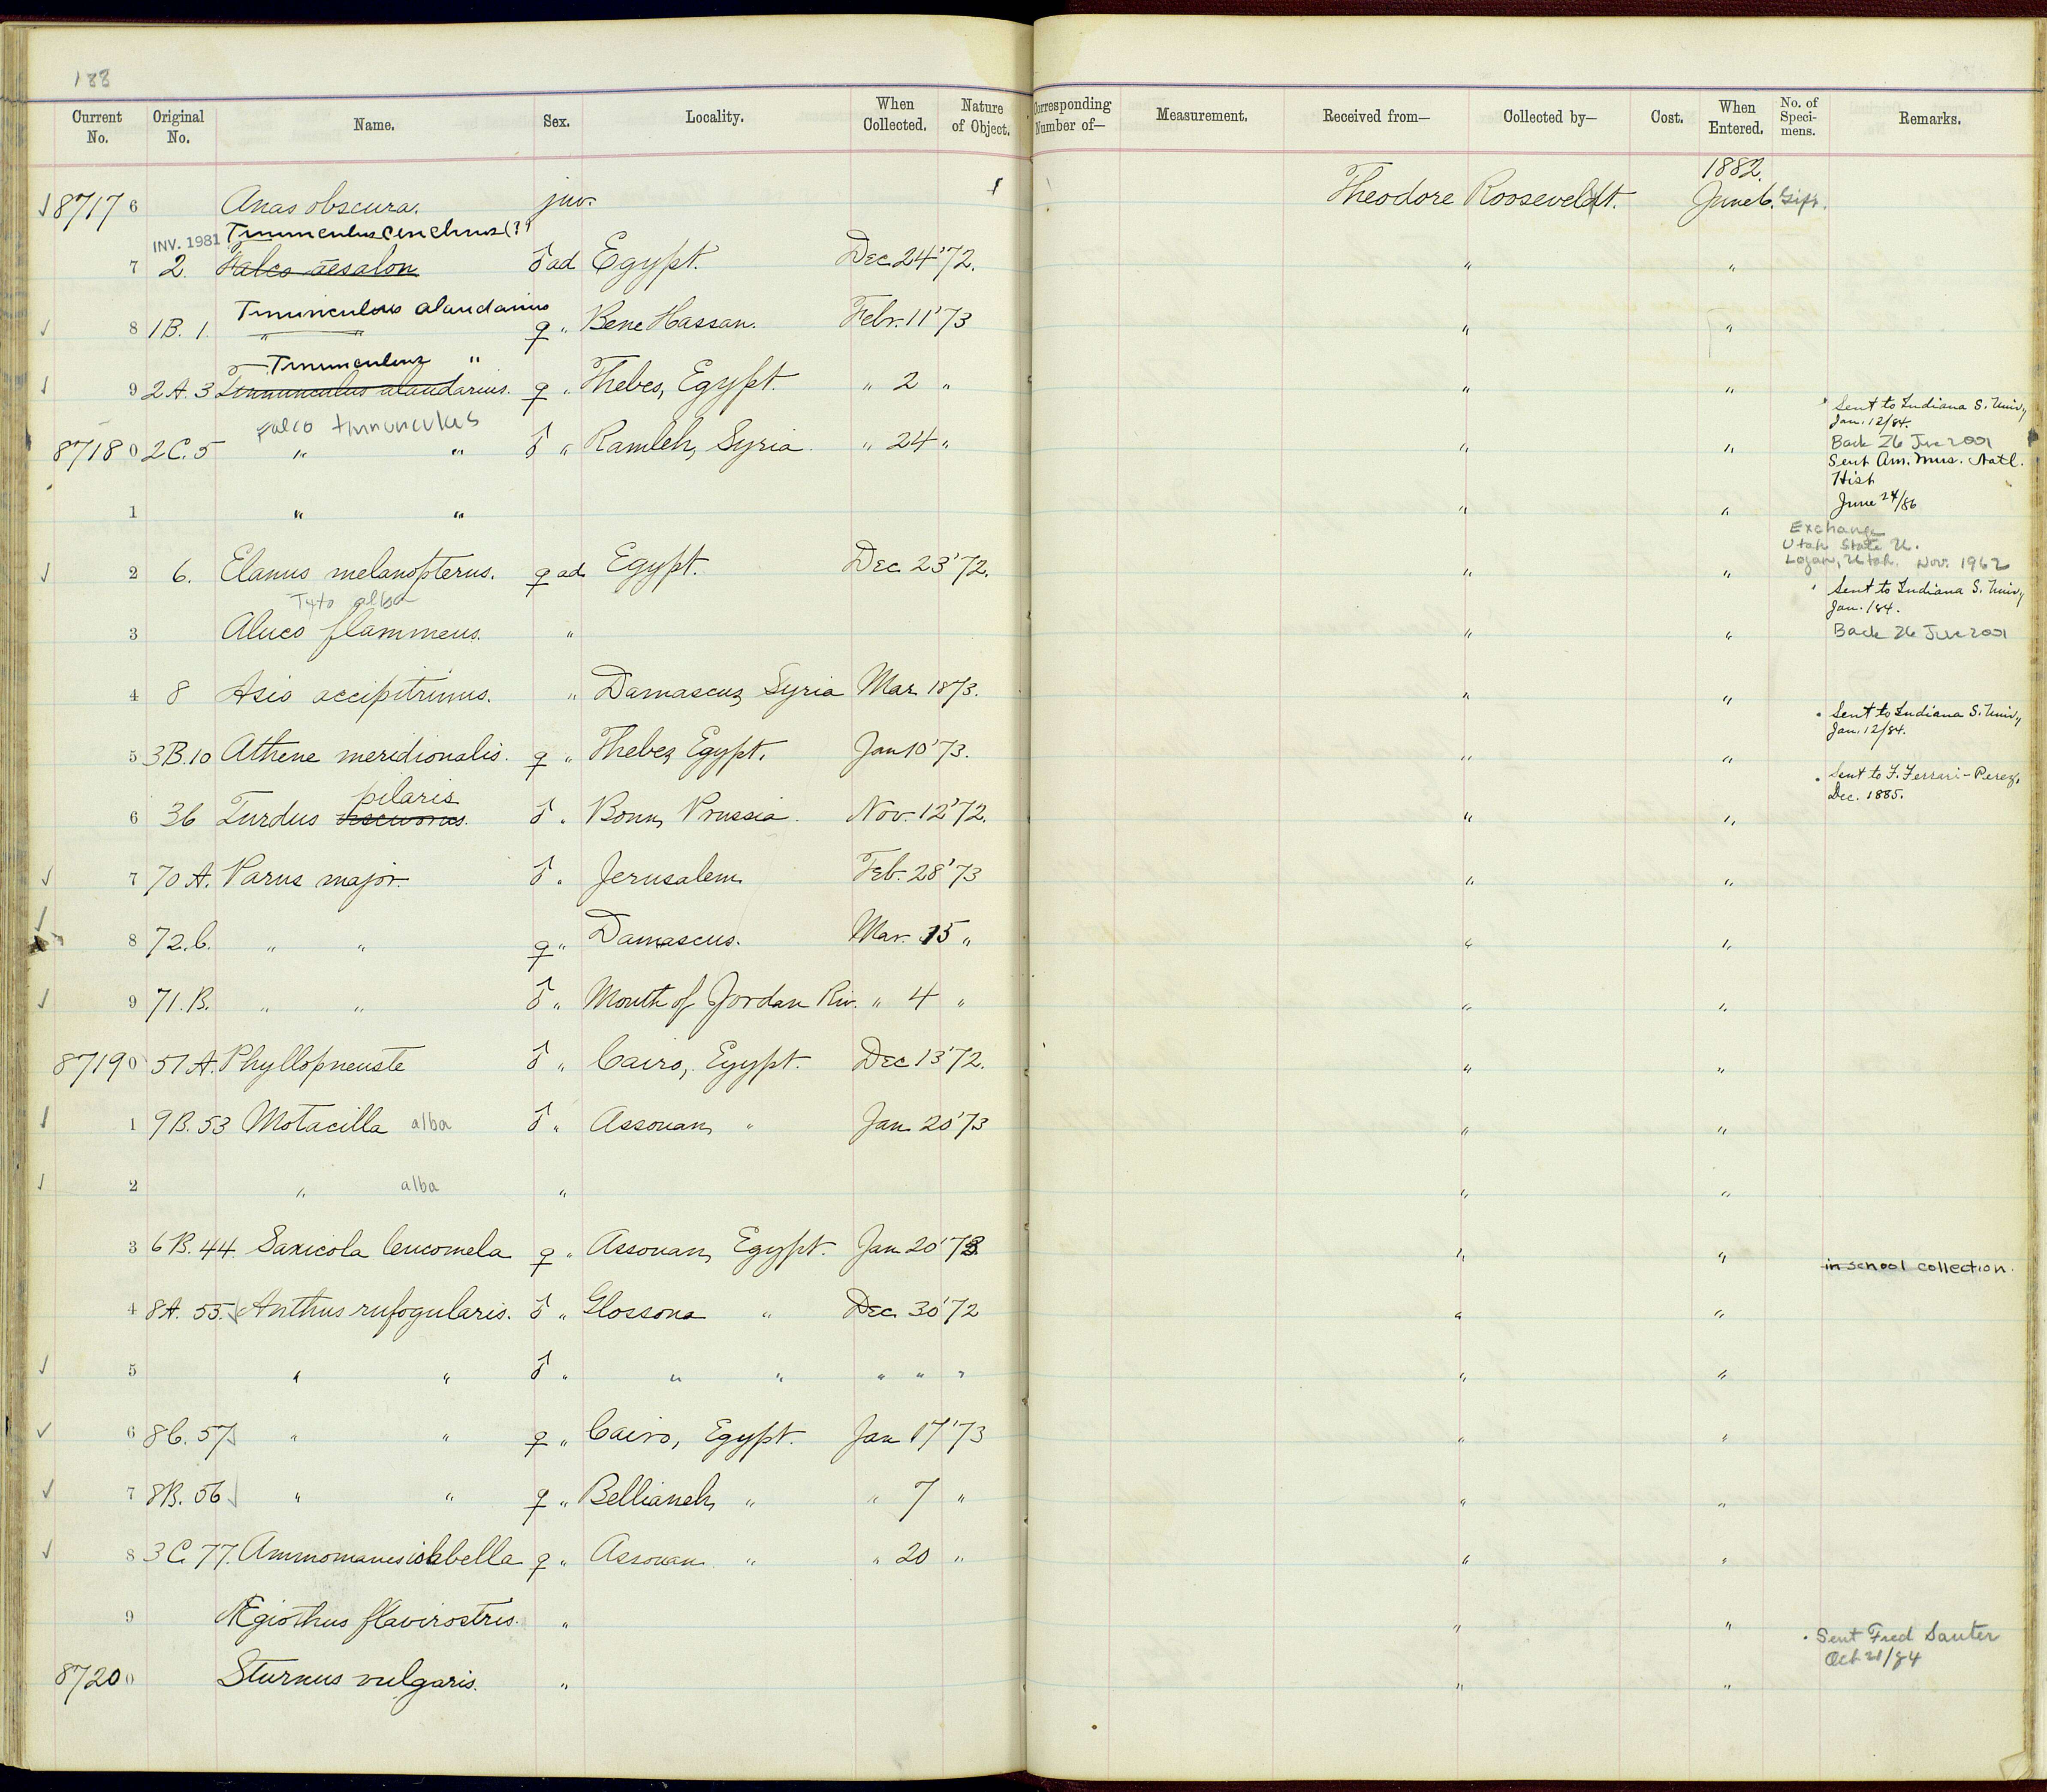 188
Current No. Original No. Name. Sex. Locality. When Collected. Nature of Object. Corresponding Number of— Measurement. Received from— Collected by— Cost. When Entered. No. of Specimens. Remarks.
1882.
87176 Anas obscura. juv. Theodore Roosevelt. June 6. Gift.
INV. 1981 Tinnunculus cenchrus (?)
7 2. Falco aesalon ♂ ad Egypt. Dec 24 '72. " "
Tinnunculus alaudarius
8 1B. 1. " " ♀ " Bene Hassan. Febr. 11 '73 " "
Tinnunculus "
9 2A. 3 Tinnunculus alaudarius. ♀ " Thebes, Egypt. " 2 " " "
Sent to Indiana S. Univ,
Jan. 12/84.
Falco tinnunculus
87180 2C. 5 " " ♂ " Ramleh, Syria. " 24 " " " Back 26 Jun 2001
Sent Am. Mus. Natl.
Hist
1 " " " " June 24/86
Exchange
Utah State U.
Logan, Utah. Nov. 1962
2 6. Elanus melanopterus. ♀ ad Egypt. Dec 23 '72. " "
Sent to Indiana S. Univ,
Jan. 184.
Tyto alba
3 Aluco flammeus. " " " Back 26 Jun 2001
4 8 Asio accipitrinus. " Damascus, Syria Mar. 1873. " "
Sent to Indiana S. Univ,
Jan. 12/84.
5 3B. 10 Athene meridionalis. ♀ " Thebes, Egypt. Jan 10 '73. " "
Sent to F. Ferrari-Perez,
Dec. 1885.
pilaris
6 36 Turdus ♂ " Bonn, Prussia. Nov. 12 '72. " "
7 70 A. Parus major. ♂ " Jerusalem Feb. 28 '73 " "
8 72. C. " " ♀ " Damascus. Mar. 15 " " "
9 71. B. " " ♂ " Mouth of Jordan Riv. " 4 " " "
87190 51 A. Phyllopneuste ♂ " Cairo, Egypt. Dec 13 '72. " "
1 9B. 53 Motacilla alba ♂ " Assouan, " Jan. 20 '73 " "
2 " alba " " "
3 6B. 44. Saxicola leucomela ♀ " Assouan, Egypt. Jan 20 '73. " " in school collection.
4 8A. 55. Anthus rufogularis. ♂ " Glossona " Dec. 30 '72 " "
5 " " ♂ " " " " " " " "
6 8C. 57 " " ♀ " Cairo, Egypt. Jan 17 '73 " "
7 8B. 56 " " ♀ " Bellianeh, " " 7 " " "
8 3C. 77. Ammomanes isabella ♀ " Assouan " " 20 " " "
9 Ægiothus flavirostris. " " "
Sent Fred Sauter
Oct 21/84
87200 Sturnus vulgaris. " " "